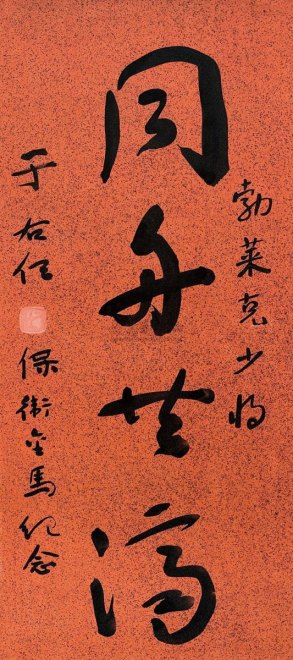 勃萊克少將
同舟共濟
保衛金馬紀念
于右任